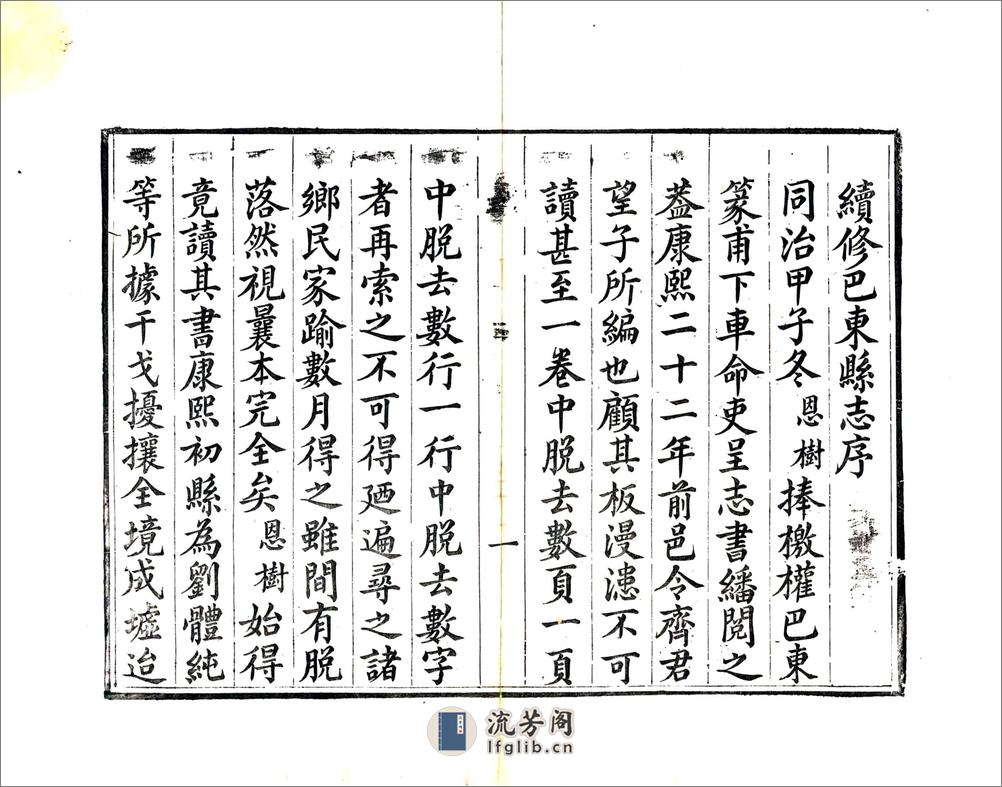 續修巴東縣志序
同治甲子冬恩樹捧檄權巴東
篆甫下車命吏呈志書繙閱之
葢康熙二十二年前邑令齊君
望子所編也顧其板漫漶不可
讀甚至一卷中脱去數頁一頁
一
中脱去數行一行中脱去數字
者再索之不可得廼遍尋之諸
鄉民家踰數月得之雖間有脱
落然視曩本完全矣恩樹始得
竟讀其書康熙初縣為劉體純
等所據干戈擾攘全境成墟迨
流芳阁
lfglib.cn